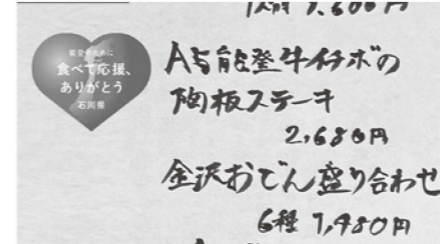 1人前 1,600円
能登のために
食べて応援、
ありがとう
石川県
A5能登牛イチボの
陶板ステーキ
2,680円
金沢おでん盛り合わせ
6種 1,480円